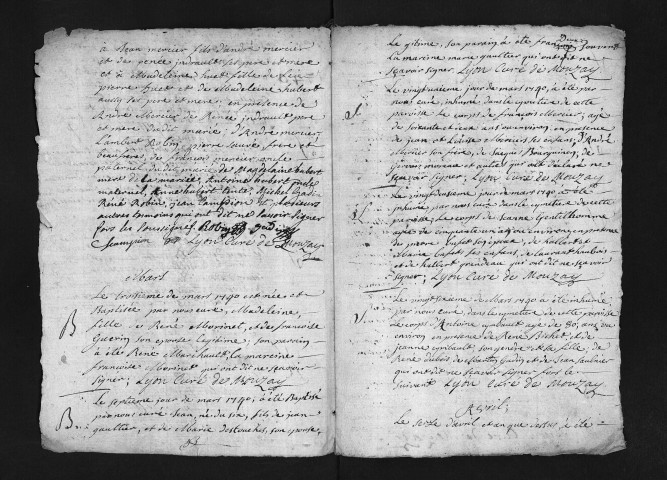 à Jean mercier fils d'andré mercier
et de renée indrault ses pere et mere
et à Madeleine huet fille de feu
pierre huet et de Madeleine hubert
aussy ses pere et mere, en presence de
André Mercier de Renée indrault pere
et mere dudit marié; d'André mercier
Lambert Robin, pierre frere et
beaufrere de francois mercier oncle
paternel du dit marié de Magdelaine hubert
mere de la mariée Antoine hubert oncle
maternel, Michel
René Robin, jean Campion et plusieurs
autres temoins qui ont dit ne Savoir signer
fors les soussignés. Robin
Jeampion Lyon Curé de Mouzay
Mars
Le troisieme de mars 1790 est née, et
B Baptisée par nous curé, Madeleine,
fille de René Morinet, et de francoise
Guerin son epouse legitime; son parain
à été René Marchault, la mareine
francoise Morinet qui ont dit ne scavoir
signer; Lyon Curé de Mouzay
Le septieme jour de mars 1790; à été Baptisé
B par nous curé Jean, né du six, fils de jean
gaultier, et de Marie destouches, son epouse,
Le gitime, son parain à été francois
La marine marie gaultier qui ont dit ne
scavoir signer Lyon Curé de Mouzay
Le vingtunieme jour de mars 1790, à été par
S nous curé, inhumé dans le cimetiere de cette
paroisse le corps de francois Mercier; agé
de soixante et deux ans ou environ, en presence
de jean et Louise Mercier ses enfans, d'André
Mercier son frere, de Jacques Bourguinon, de
et autres qui ont déclaré ne
scavoir signer; Lyon Curé de Mouzay
Le vingt deuxieme jour de mars 1790 à été
S inhumé par nous curé dans le cimetiere de cette
paroisse, Le corps de Jeanne Gentilhomme
agée de cinquante ans ou environ, en presence
de pierre son epoux, de
Marie ses enfans, de Laurant
et de prudeau qui ont dit ne scavoir
signer; Lyon Curé de Mouzay
Le vingt sixieme de Mars 1790 à été inhumé
par nous curé, dans le cimetiere de cette paroisse
Le corps d'Antoine agé de 80, ans ou
environ en presence de René Bichet, et de
jeanne son gendre, et sa fille, de
René dubois de Martin Gadin, et de Jean Saulnier
qui ont dit ne scavoir signer fors le
suivant Lyon Curé de Mouzay
Avril;
Le seize d'avril et an que dessus, à été